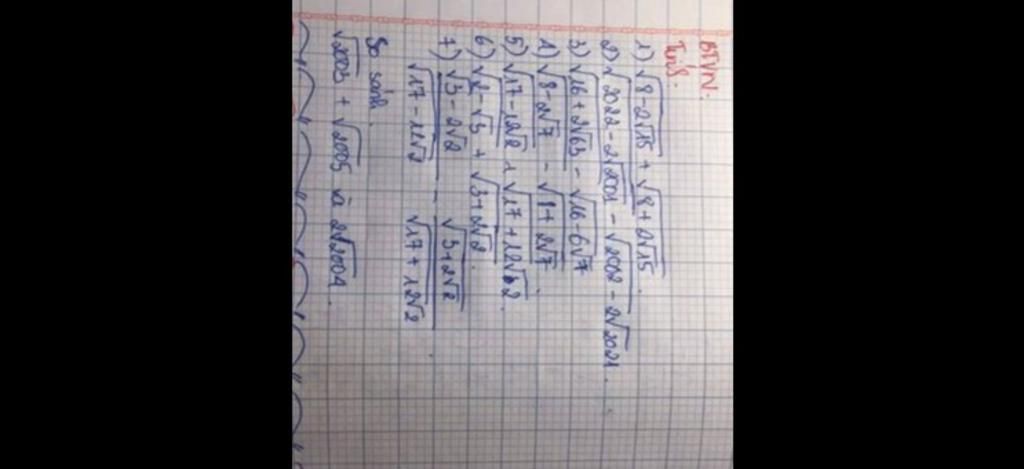 BTVN.
Tính.
1) √8-2√15 + √8+2√15.
2) √2022-2√2001 - √2002-2√2021.
3) √16+2√63 - √16-6√7
4) √8-2√7 - √8+2√7
5) √17-12√2 + √17+12√2.
6) √2-√3 + √3+2√2.
7) √3-2√2 / √17-12√2 - √3+2√2 / √17+12√2.
So sánh.
√2003 + √2005 và 2√2004.